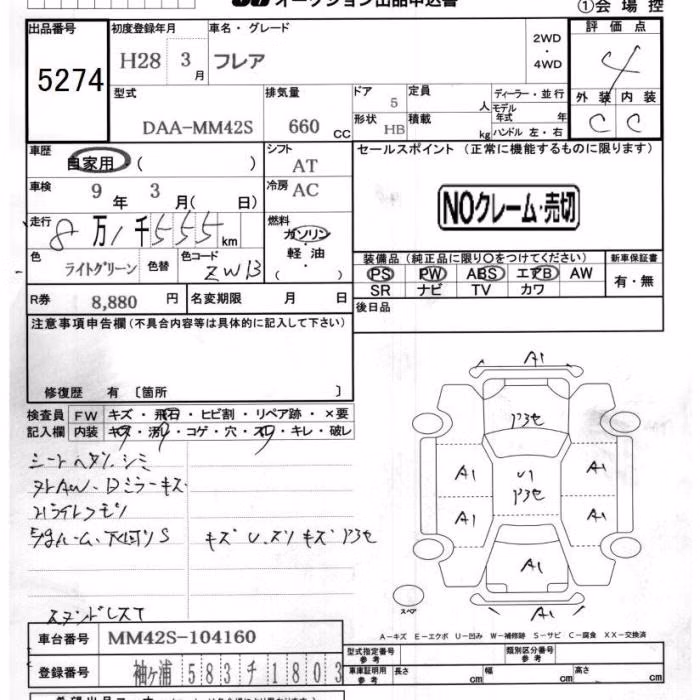 オークション出品申込書
①会場控
出品番号 初度登録年月 車名・グレード 2WD・4WD 評価点
5274 H28 3月 フレア 4
型式 排気量 ドア 5 定員 人 ディーラー・並行 外装 内装
DAA-MM42S 660 CC 形状 HB 積載 kg モデル年式 年 ハンドル 左・右 C C
車歴 自家用 ( ) シフト AT セールスポイント (正常に機能するものに限ります)
車検 9年 3月( 日) 冷房 AC
走行 8万1千555km 燃料 ガソリン・軽油 ( ) NOクレーム・売切
色 ライトグリーン 色替 色コード ZWB 装備品 (純正品に限り○をつけてください) 新車保証書
PS PW ABS エアB AW 有・無
SR ナビ TV カワ
R券 8,880円 名変期限 月 日 後日品
注意事項申告欄(不具合内容等は具体的に記入して下さい)
修復歴 有 〔箇所 〕
検査員 FW キズ・飛石・ヒビ割・リペア跡・×要
記入欄 内装 キズ・汚れ・コゲ・穴・スレ・キレ・破レ
シートヘタリ、シミ
キズ U、スリキズ
A1
A1 A1
U1
A1 A1
A1
A1
スペア
A-キズ E-エクボ U-凹み W-補修跡 S-サビ C-腐食 XX-交換済
車台番号 MM42S-104160 型式指定番号 参考 類別区分番号 参考
登録番号 袖ヶ浦 583 チ 1803 車庫証明用 参考 長さ cm 幅 cm 高さ cm